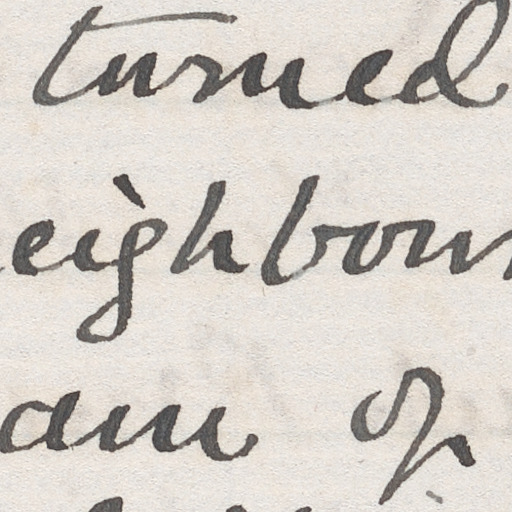 turned
eighbour
am of